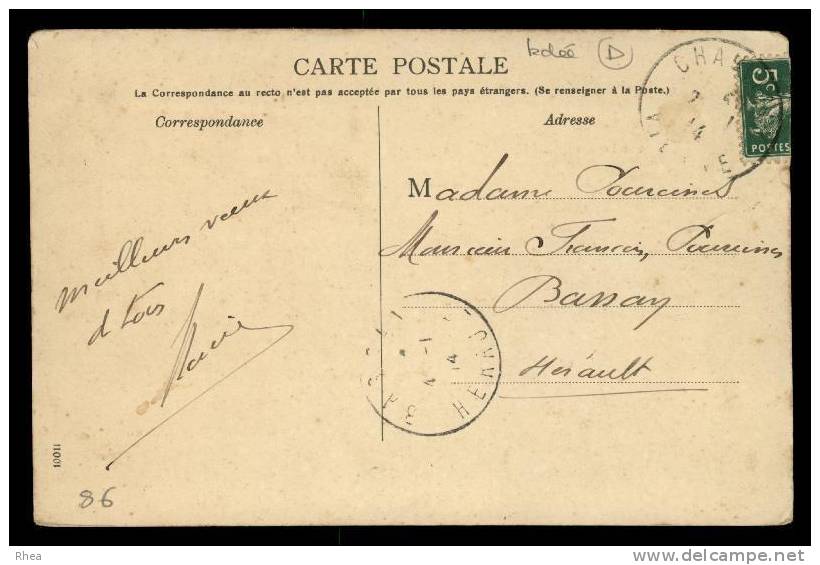 CARTE POSTALE
La Correspondance au recto n'est pas acceptée par tous les pays étrangers. (Se renseigner à la Poste.)
Correspondance
Adresse
CHA
5c
POSTES
Madame
Monsieur François
Bassan
Hérault
meilleurs vœux
HERAULT
4 -1
14
10011
86
Rhea
www.delcampe.net